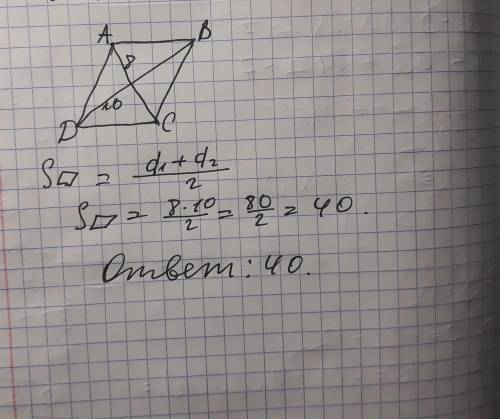 A B
8
10
D C
S▱ = d₁ + d₂ / 2
S▱ = 8·10/2 = 80/2 = 40.
Ответ: 40.